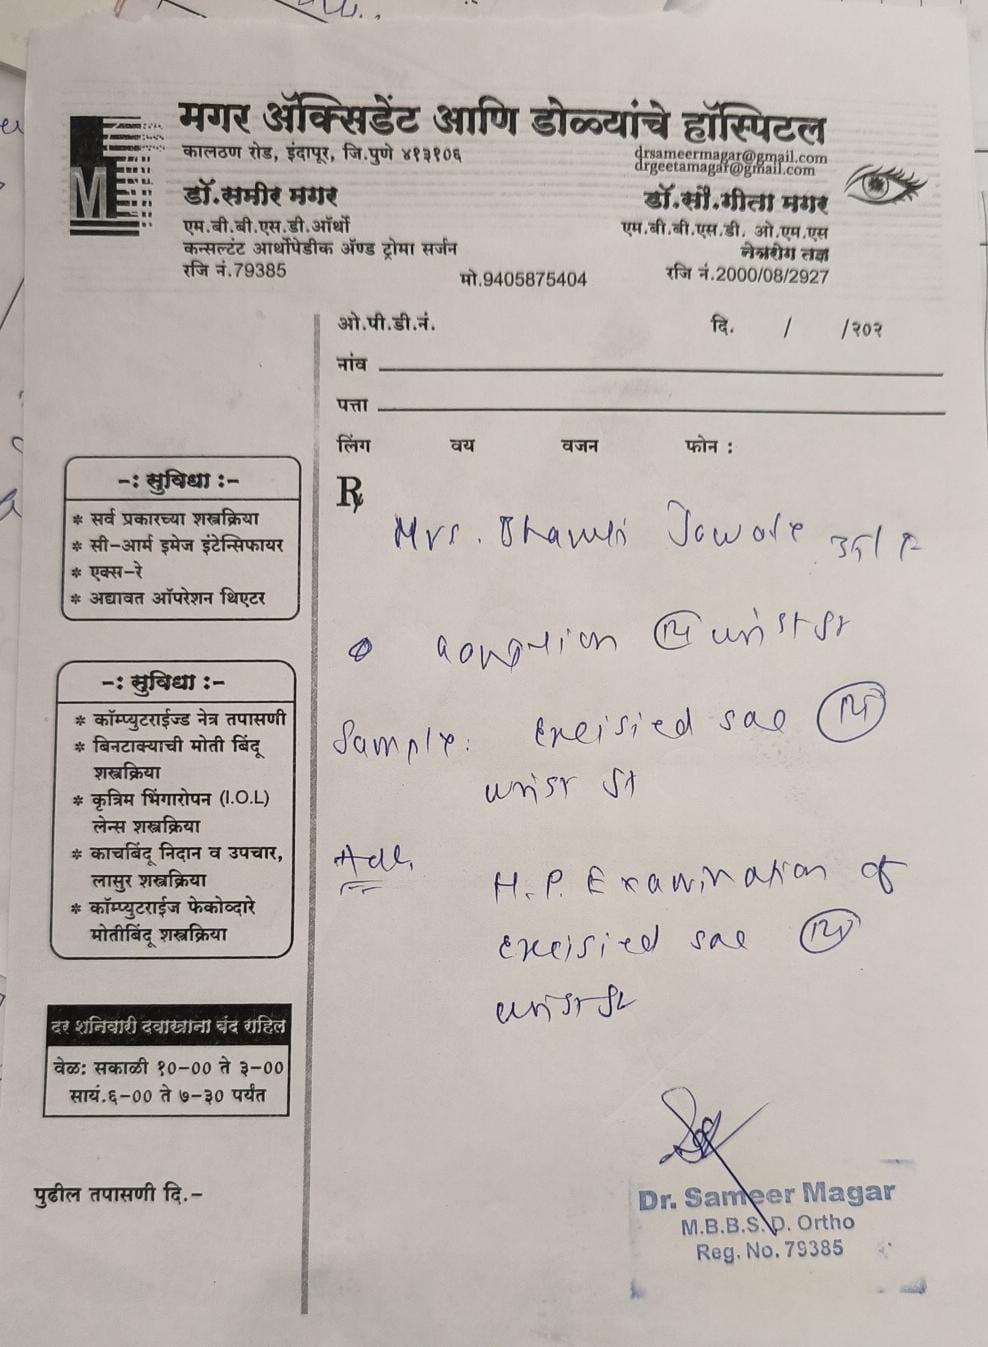 मगर ॲक्सिडेंट आणि डोळ्यांचे हॉस्पिटल
कालठण रोड, इंदापूर, जि.पुणे ४१३१०६
drsameermagar@gmail.com
drgeetamagar@gmail.com
M
डॉ.समीर मगर
एम.बी.बी.एस.डी.ऑर्थो
कन्सल्टंट आर्थोपेडीक ॲण्ड ट्रोमा सर्जन
रजि नं.79385
मो.9405875404
डॉ.सौ.गीता मगर
एम.बी.बी.एस.डी. ओ.एम.एस
नेत्ररोग तज्ञ
रजि नं.2000/08/2927
ओ.पी.डी.नं. दि. / /२०२
नांव
पत्ता
लिंग वय वजन फोन :
-: सुविधा :-
* सर्व प्रकारच्या शस्त्रक्रिया
* सी-आर्म इमेज इंटेन्सिफायर
* एक्स-रे
* अद्यावत ऑपरेशन थिएटर
-: सुविधा :-
* कॉम्प्युटराईज्ड नेत्र तपासणी
* बिनटाक्याची मोती बिंदू
शस्त्रक्रिया
* कृत्रिम भिंगारोपन (I.O.L)
लेन्स शस्त्रक्रिया
* काचबिंदू निदान व उपचार,
लासुर शस्त्रक्रिया
* कॉम्प्युटराईज फेकोव्दारे
मोतीबिंदू शस्त्रक्रिया
दर शनिवारी दवाखाना बंद राहिल
वेळ: सकाळी १०-०० ते ३-००
सायं.६-०० ते ७-३० पर्यंत
पुढील तपासणी दि.-
Rx
Mrs.
wrist
Sample: Excisied sac
wrist
Adv.
H.P. Examination of
excisied sac
wrist
Dr. Sameer Magar
M.B.B.S.D. Ortho
Reg. No. 79385